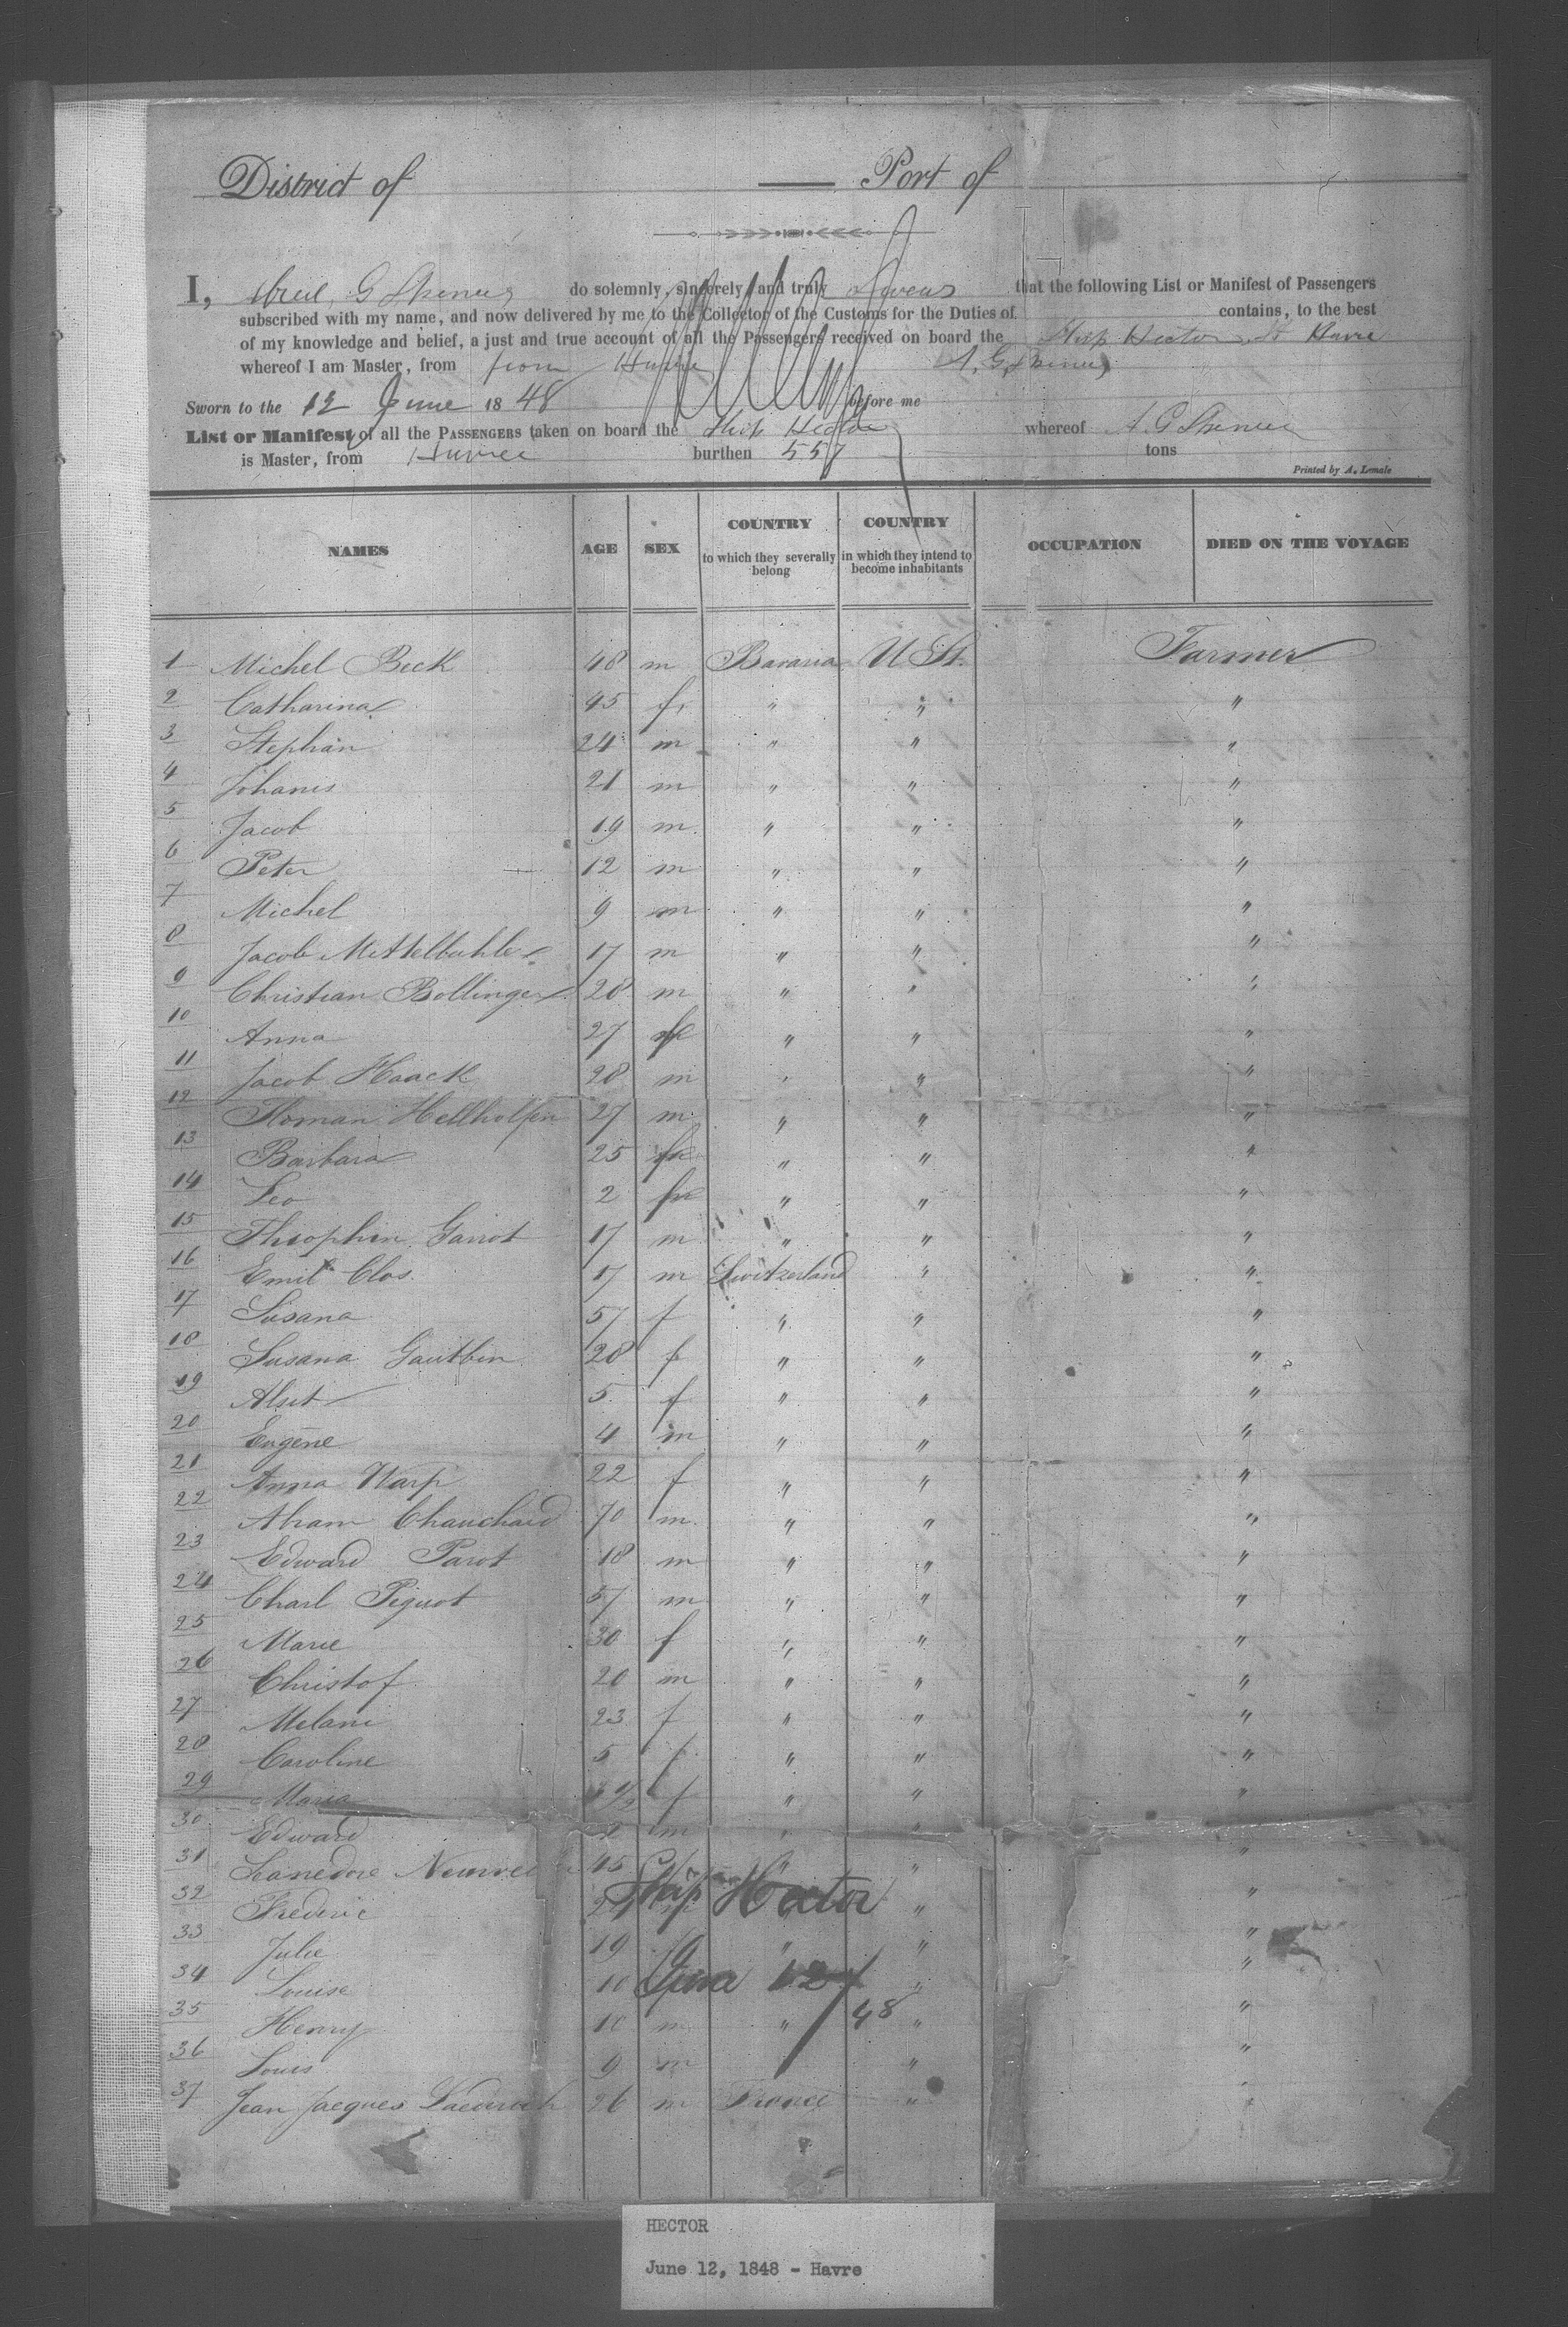 District of — Port of
I, G Spencer do solemnly, sincerely and truly that the following List or Manifest of Passengers
subscribed with my name, and now delivered by me to the Collector of the Customs for the Duties of contains, to the best
of my knowledge and belief, a just and true account of all the Passengers received on board the Ship Hector Havre
whereof I am Master, from from Havre A. G. Spencer
Sworn to the 12 June 1848 before me
List or Manifest of all the PASSENGERS taken on board the Ship Hector whereof A. G Spencer
is Master, from Havre burthen 557 tons
Printed by A. Lemale
NAMES AGE SEX COUNTRY to which they severally belong COUNTRY in which they intend to become inhabitants OCCUPATION DIED ON THE VOYAGE
1 Michel Beck 48 m Bavaria U St. Farmer
2 Catharina 45 f " " "
3 Stephan 24 m " " "
4 Johanis 21 m " " "
5 Jacob 19 m " " "
6 Peter 12 m " " "
7 Michel 9 m " " "
8 Jacob Mettelbuhler 17 m " " "
9 Christian Bollinger 28 m " " "
10 Anna 27 f " " "
11 Jacob Haack 28 m " " "
12 27 m " " "
13 Barbara 25 f " " "
14 Leo 2 " " "
15 Theophin Garrot 17 m " " "
16 Emil Clos 17 m Switzerland " "
17 Susana 57 f " " "
18 Susana 28 f " " "
19 5 f " " "
20 Eugene 4 m " " "
21 Anna 22 f " " "
22 Abram Chauchard 70 m " " "
23 Edward Parot 18 m " " "
24 Charl Piguot 57 m " " "
25 Marie 30 f " " "
26 Christof 20 m " " "
27 Melani 23 f " " "
28 Caroline 5 f " " "
29 Maria f " " "
30 Edward m " " "
31 45 " "
32 Frederic " "
33 Julie 19 " " "
34 Louise 10 " "
35 Henry 10 m " " "
36 Louis 9 m " "
37 Jean Jacques 26 m France " "
Ship Hector
June 12/48
HECTOR
June 12, 1848 - Havre